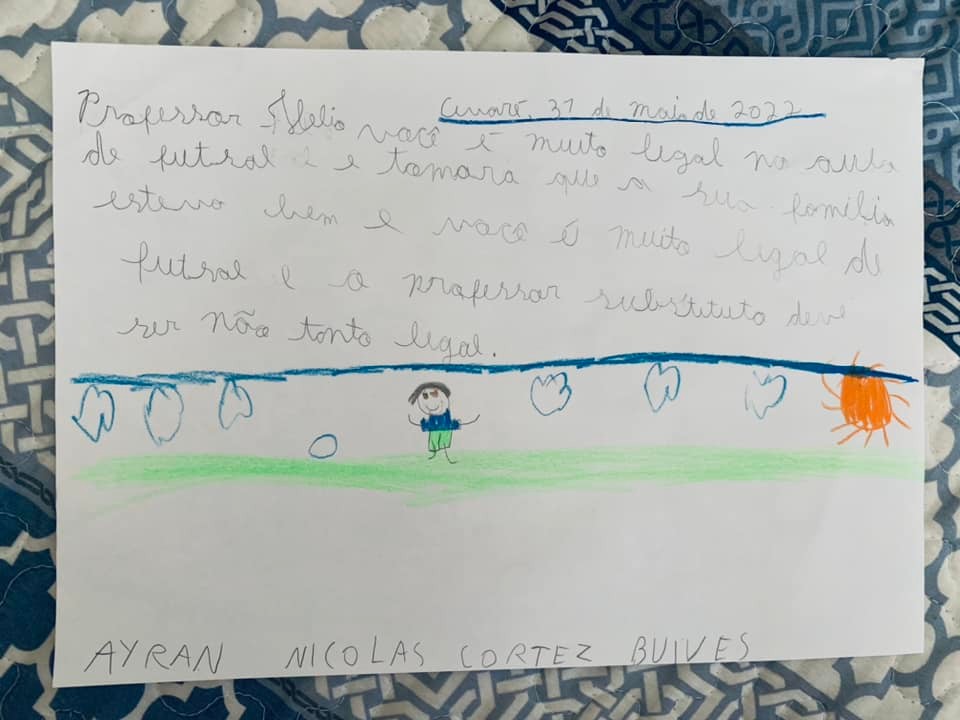 Avaré, 31 de maio de 2022
Professor Hélio você é muito legal na aula
de futsal e e tomara que a sua família
esteva bem e você é muito legal de
futsal e o professor substituto deve
ser não tonto legal.
AYRAN NICOLAS CORTEZ BUIVES